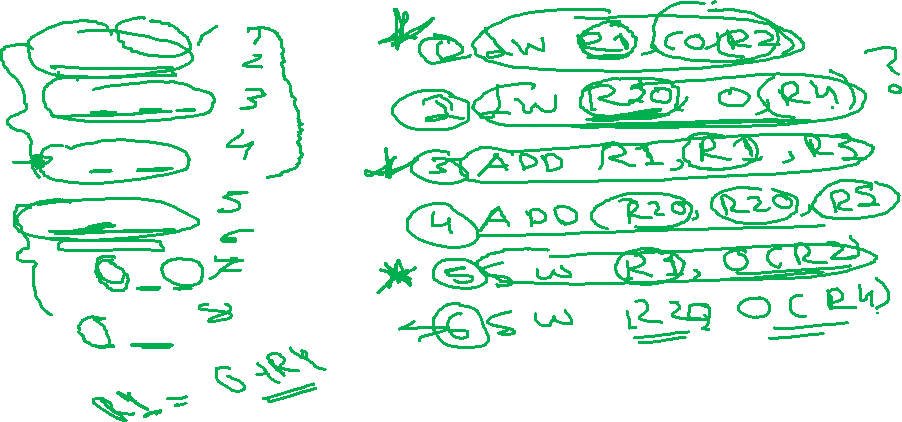 1
2
3
4
5
6
7
8
R1 = 0+R4
1 LW R1, 0(R2)
2 LW R20, 0(R4)
?
3 ADD R1, R1, R3
4 ADD R20, R20, R3
5 SW R1, 0(R2)
6 SW R20 0(R4)